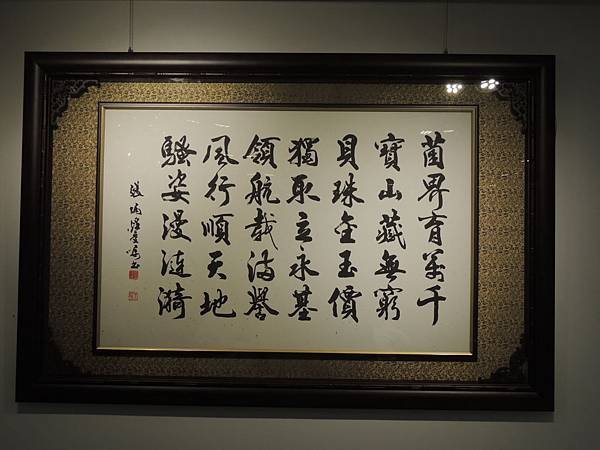 菌界育萬千
寶山藏無窮
貝珠金玉價
獨取立永基
領航載滿譽
風行順天地
騷姿漫漣漪